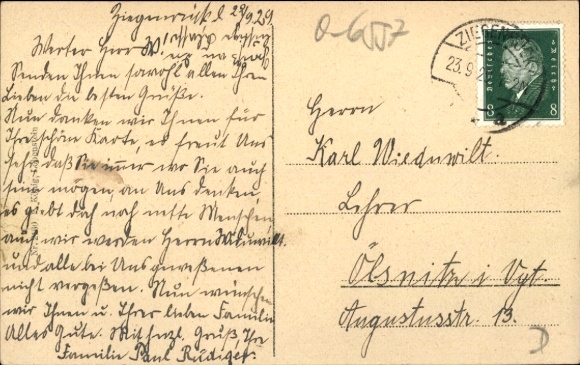 Ziegenrück d 23/9.29.
Werter Herr W!
Senden Ihnen sowohl allen Ihren
Lieben die besten Grüße.
Nun danken wir Ihnen für
Ihre schöne Karte, es freut Uns
sehr daß Sie immer wo Sie auch
sein mögen, an Uns denken
es giebt doch noch nette Menschen
auch wir werden Herrn Widuwilt.
und alle bei Uns gewesenen
nicht vergeßen. Nun wünschen
wir Ihnen u. Ihrer lieben Familie
Alles Gute. Mit herzl. Gruß, Ihre
Familie Paul Rüdiger.
0-6557
ZIEGENRÜCK
23.9.2
Deutsches Reich
8 8
Herrn
Karl Wiednwilt.
Lehrer
Ölsnitz i Vgt.
Augustusstr. 13.
D